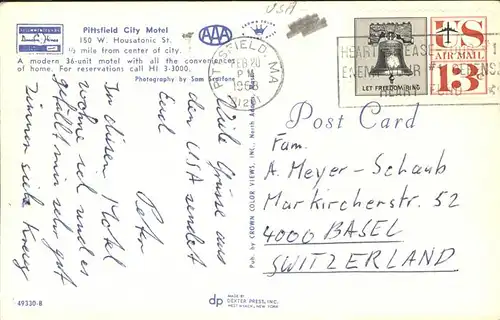 USA
Pittsfield City Motel
150 W. Housatonic St.
½ mile from center of city.
A modern 36-unit motel with all the conveniences
of home. For reservations call HI 3-3000.
Photography by Sam
AAA
PITTSFIELD, MA
FEB 20
PM
1968
012
LET FREEDOM RING
US
AIR MAIL
13¢
HEART
Post Card
Fam.
A. Meyer-Schaub
Markircherstr. 52
4000 BASEL
SWITZERLAND
Viele Grüsse aus
den USA sendet
Euch
Peter
In diesem Motel
wohne ich und es
gefällt mir sehr gut
Zimmer siehe Kreuz
Pub. by CROWN COLOR VIEWS, INC., North
49330-B
dp
MADE BY
DEXTER PRESS, INC.
WEST NYACK, NEW YORK